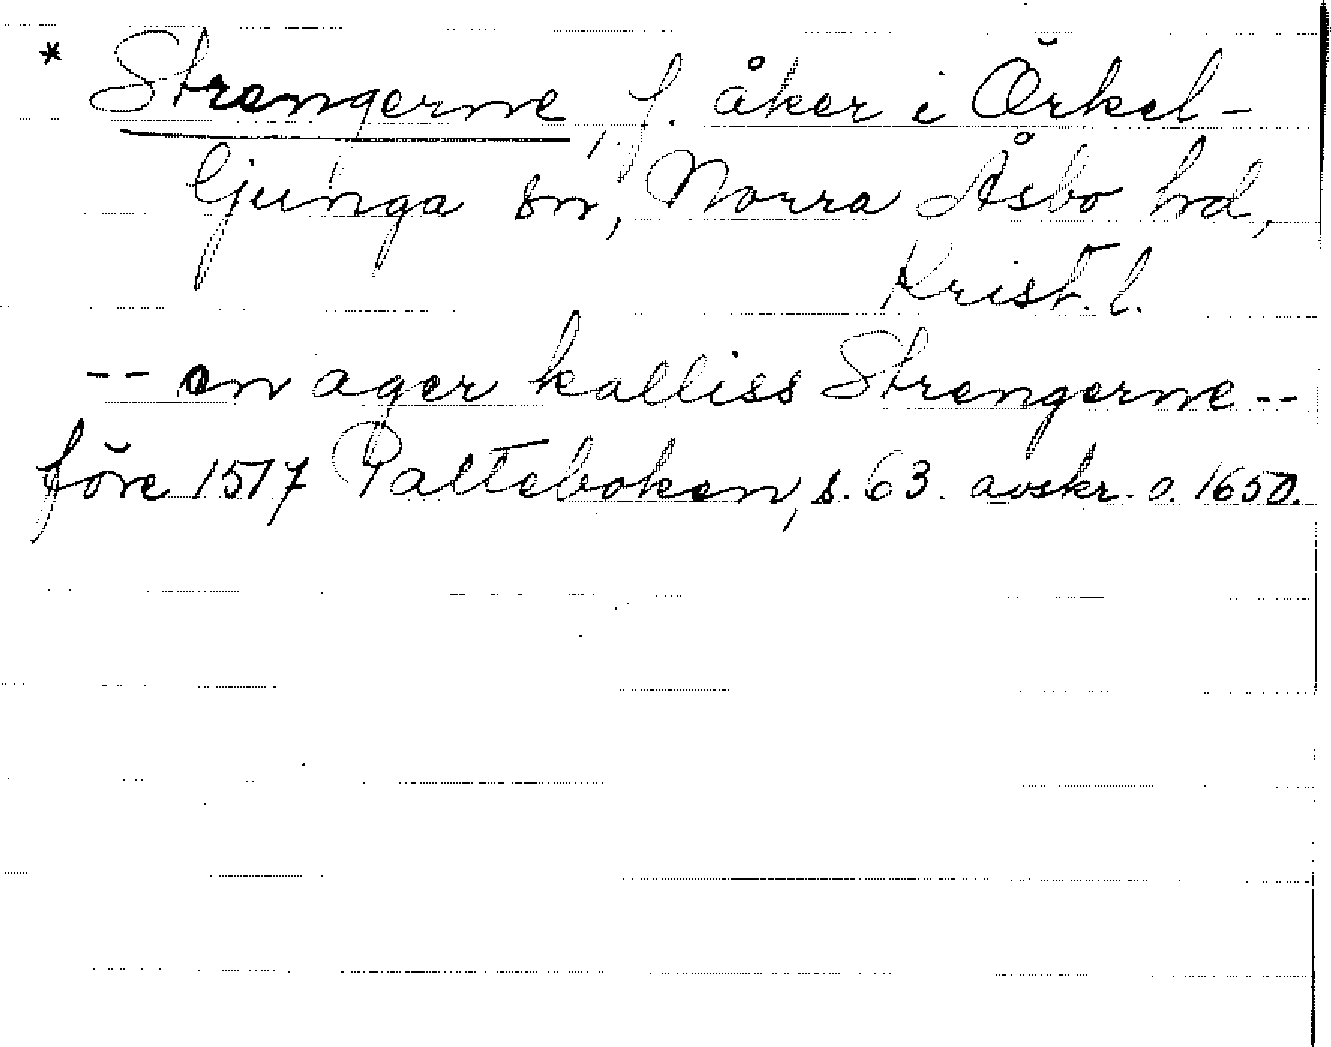 * Strengerne, f. åker i Örkel-
ljunga sn, Norra Åsbo hd,
Krist. l.
-- en ager kalliss Strengerne --
före 1517 Palteboken, s. 63. avskr. o. 1650.